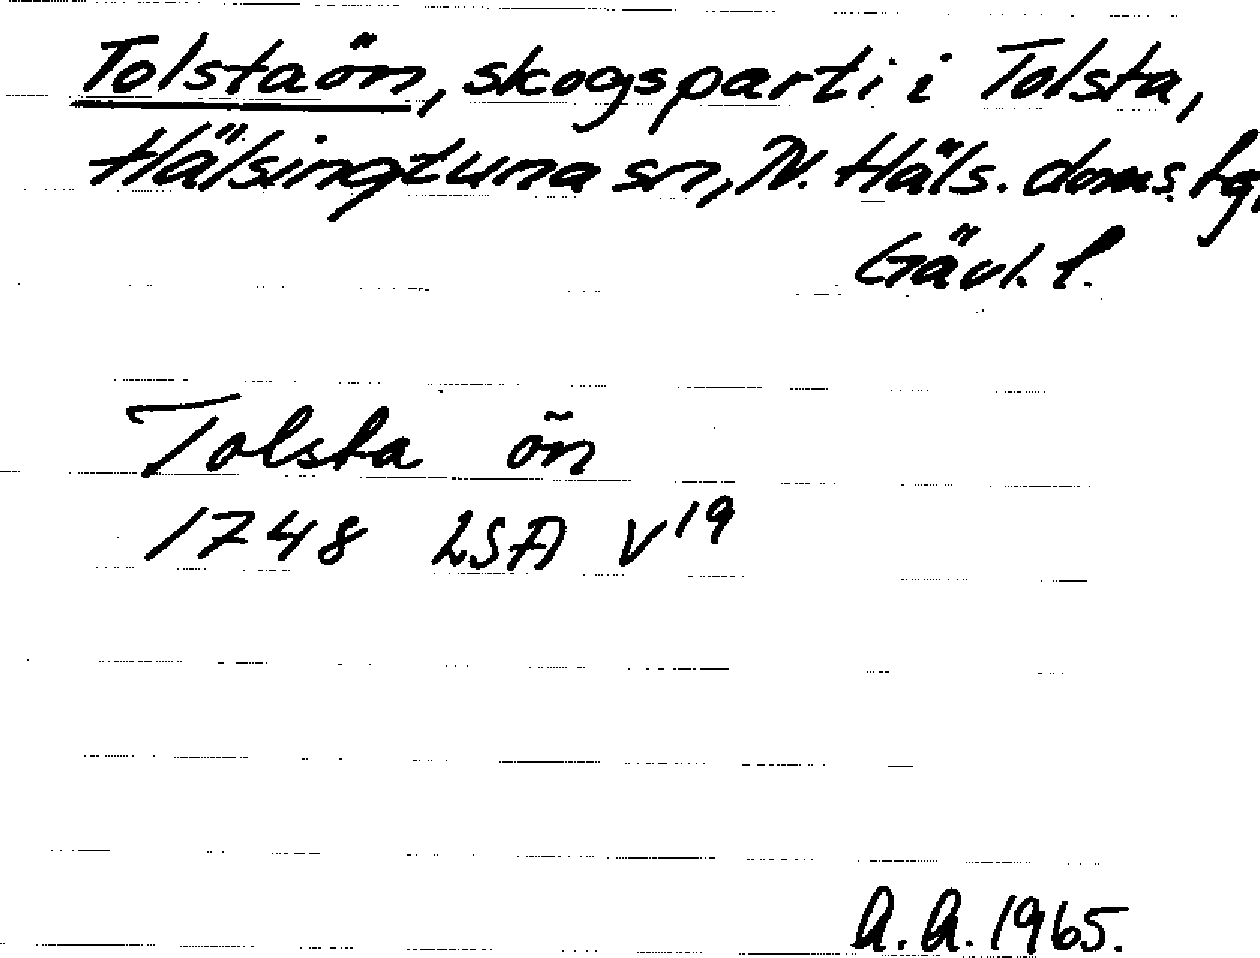 Tolstaön, skogsparti i Tolsta,
Hälsingtuna sn, N. Häls. doms.hg.
Gävl. l.
Tolsta ön
1748 LSA V19
A.A. 1965.